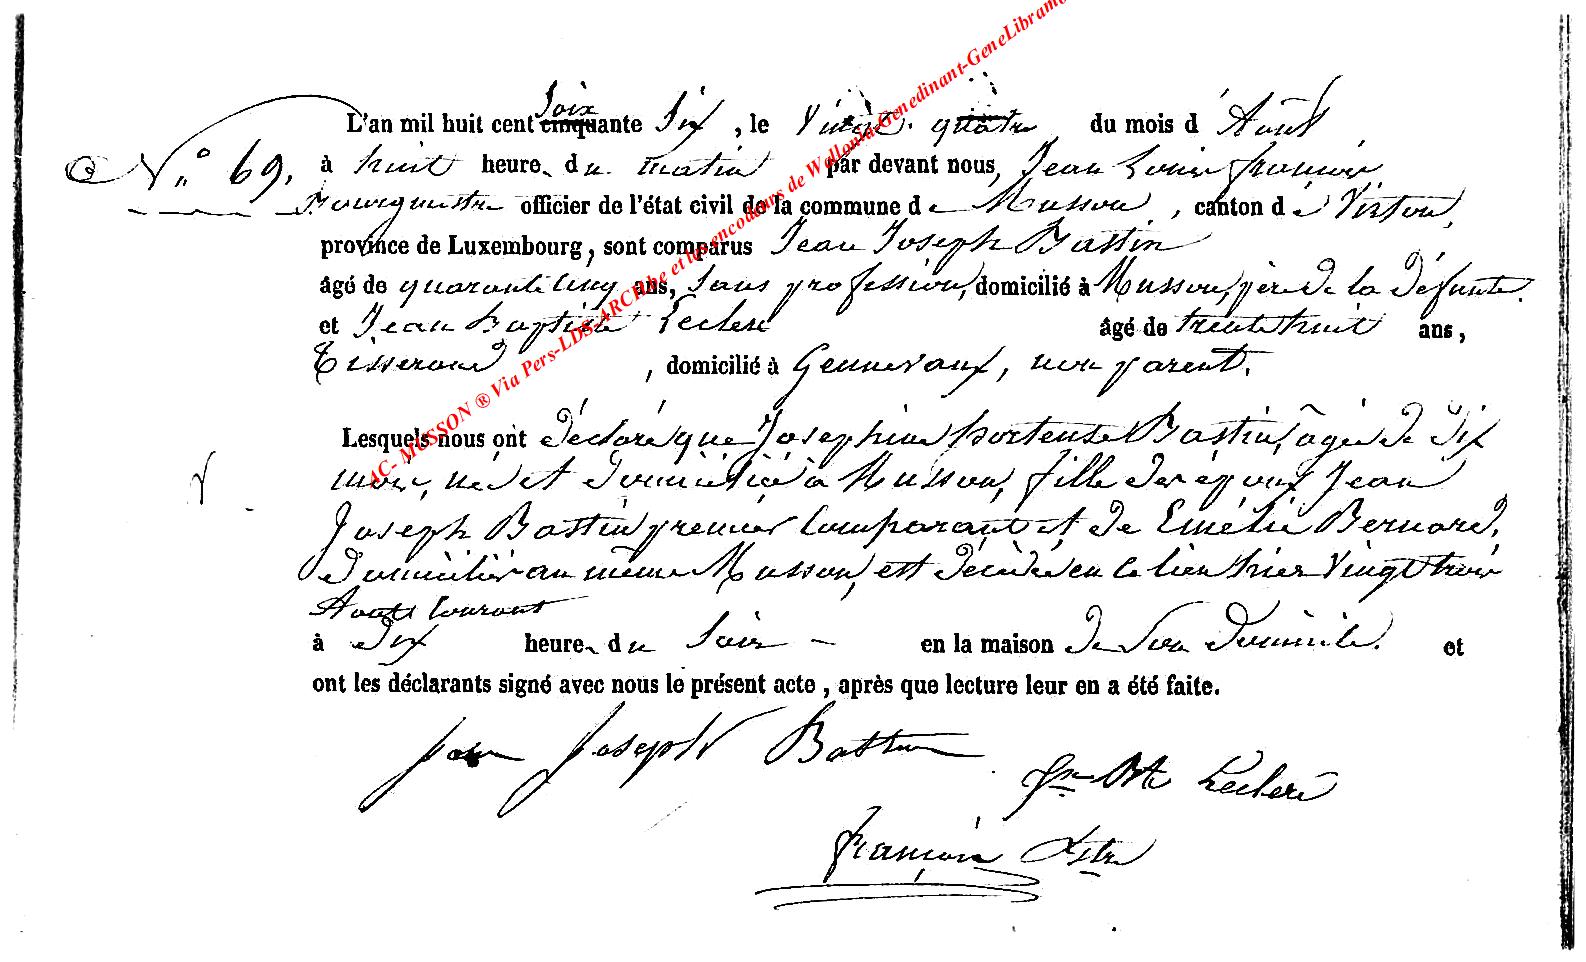 L'an mil huit cent soixante six, le vingt quatre du mois d'Août
N° 69. à huit heure du matin par devant nous, Jean Louis françois
Bourgmestre officier de l'état civil de la commune de Musson, canton de Virton,
province de Luxembourg, sont comparus Jean Joseph Bastin
âgé de quarante cinq ans, sans profession, domicilié à Musson, père de la défunte.
et Jean Baptiste Leclere âgé de trente huit ans,
Tisserand, domicilié à Gennevaux, non parent.
Lesquels nous ont déclaré que Josephine hortense Bastin, âgée de dix
mois, née et domiciliée à Musson, fille des époux Jean
Joseph Bastin premier comparant et de Emélie Bernard,
domiciliés au même Musson, est décédée en ce lieu hier vingt trois
Août courant
à dix heure du soir en la maison de son domicile. et
ont les déclarants signé avec nous le présent acte, après que lecture leur en a été faite.
Jean Joseph Bastin
Jn Bte Leclere
françois
AC- MUSSON ® Via Pers-LDS-ARCHbe et les encodeurs de Wallonia-Genedinant-GeneLibramo